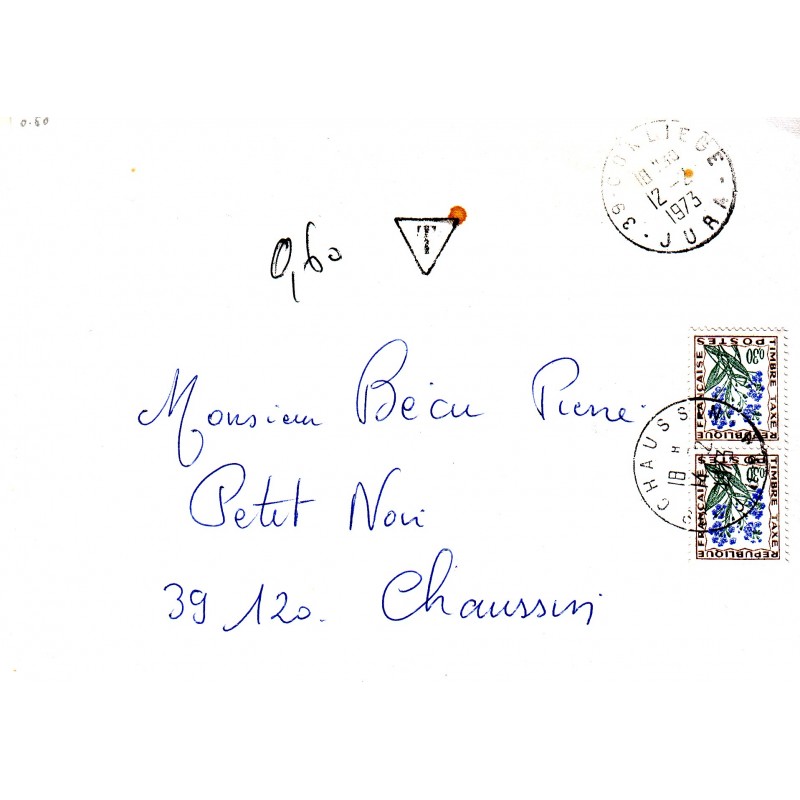 0.60
39 - CONLIEGE
18H30
12 - 2
1973
JURA
T
0,60
Monsieur Bécu Pierre
Petit Noir
39 120. Chaussin
TIMBRE TAXE
POSTES
0,30
RÉPUBLIQUE
FRANÇAISE
TIMBRE TAXE
0,30
RÉPUBLIQUE
FRANÇAISE
CHAUSSIN
18 H